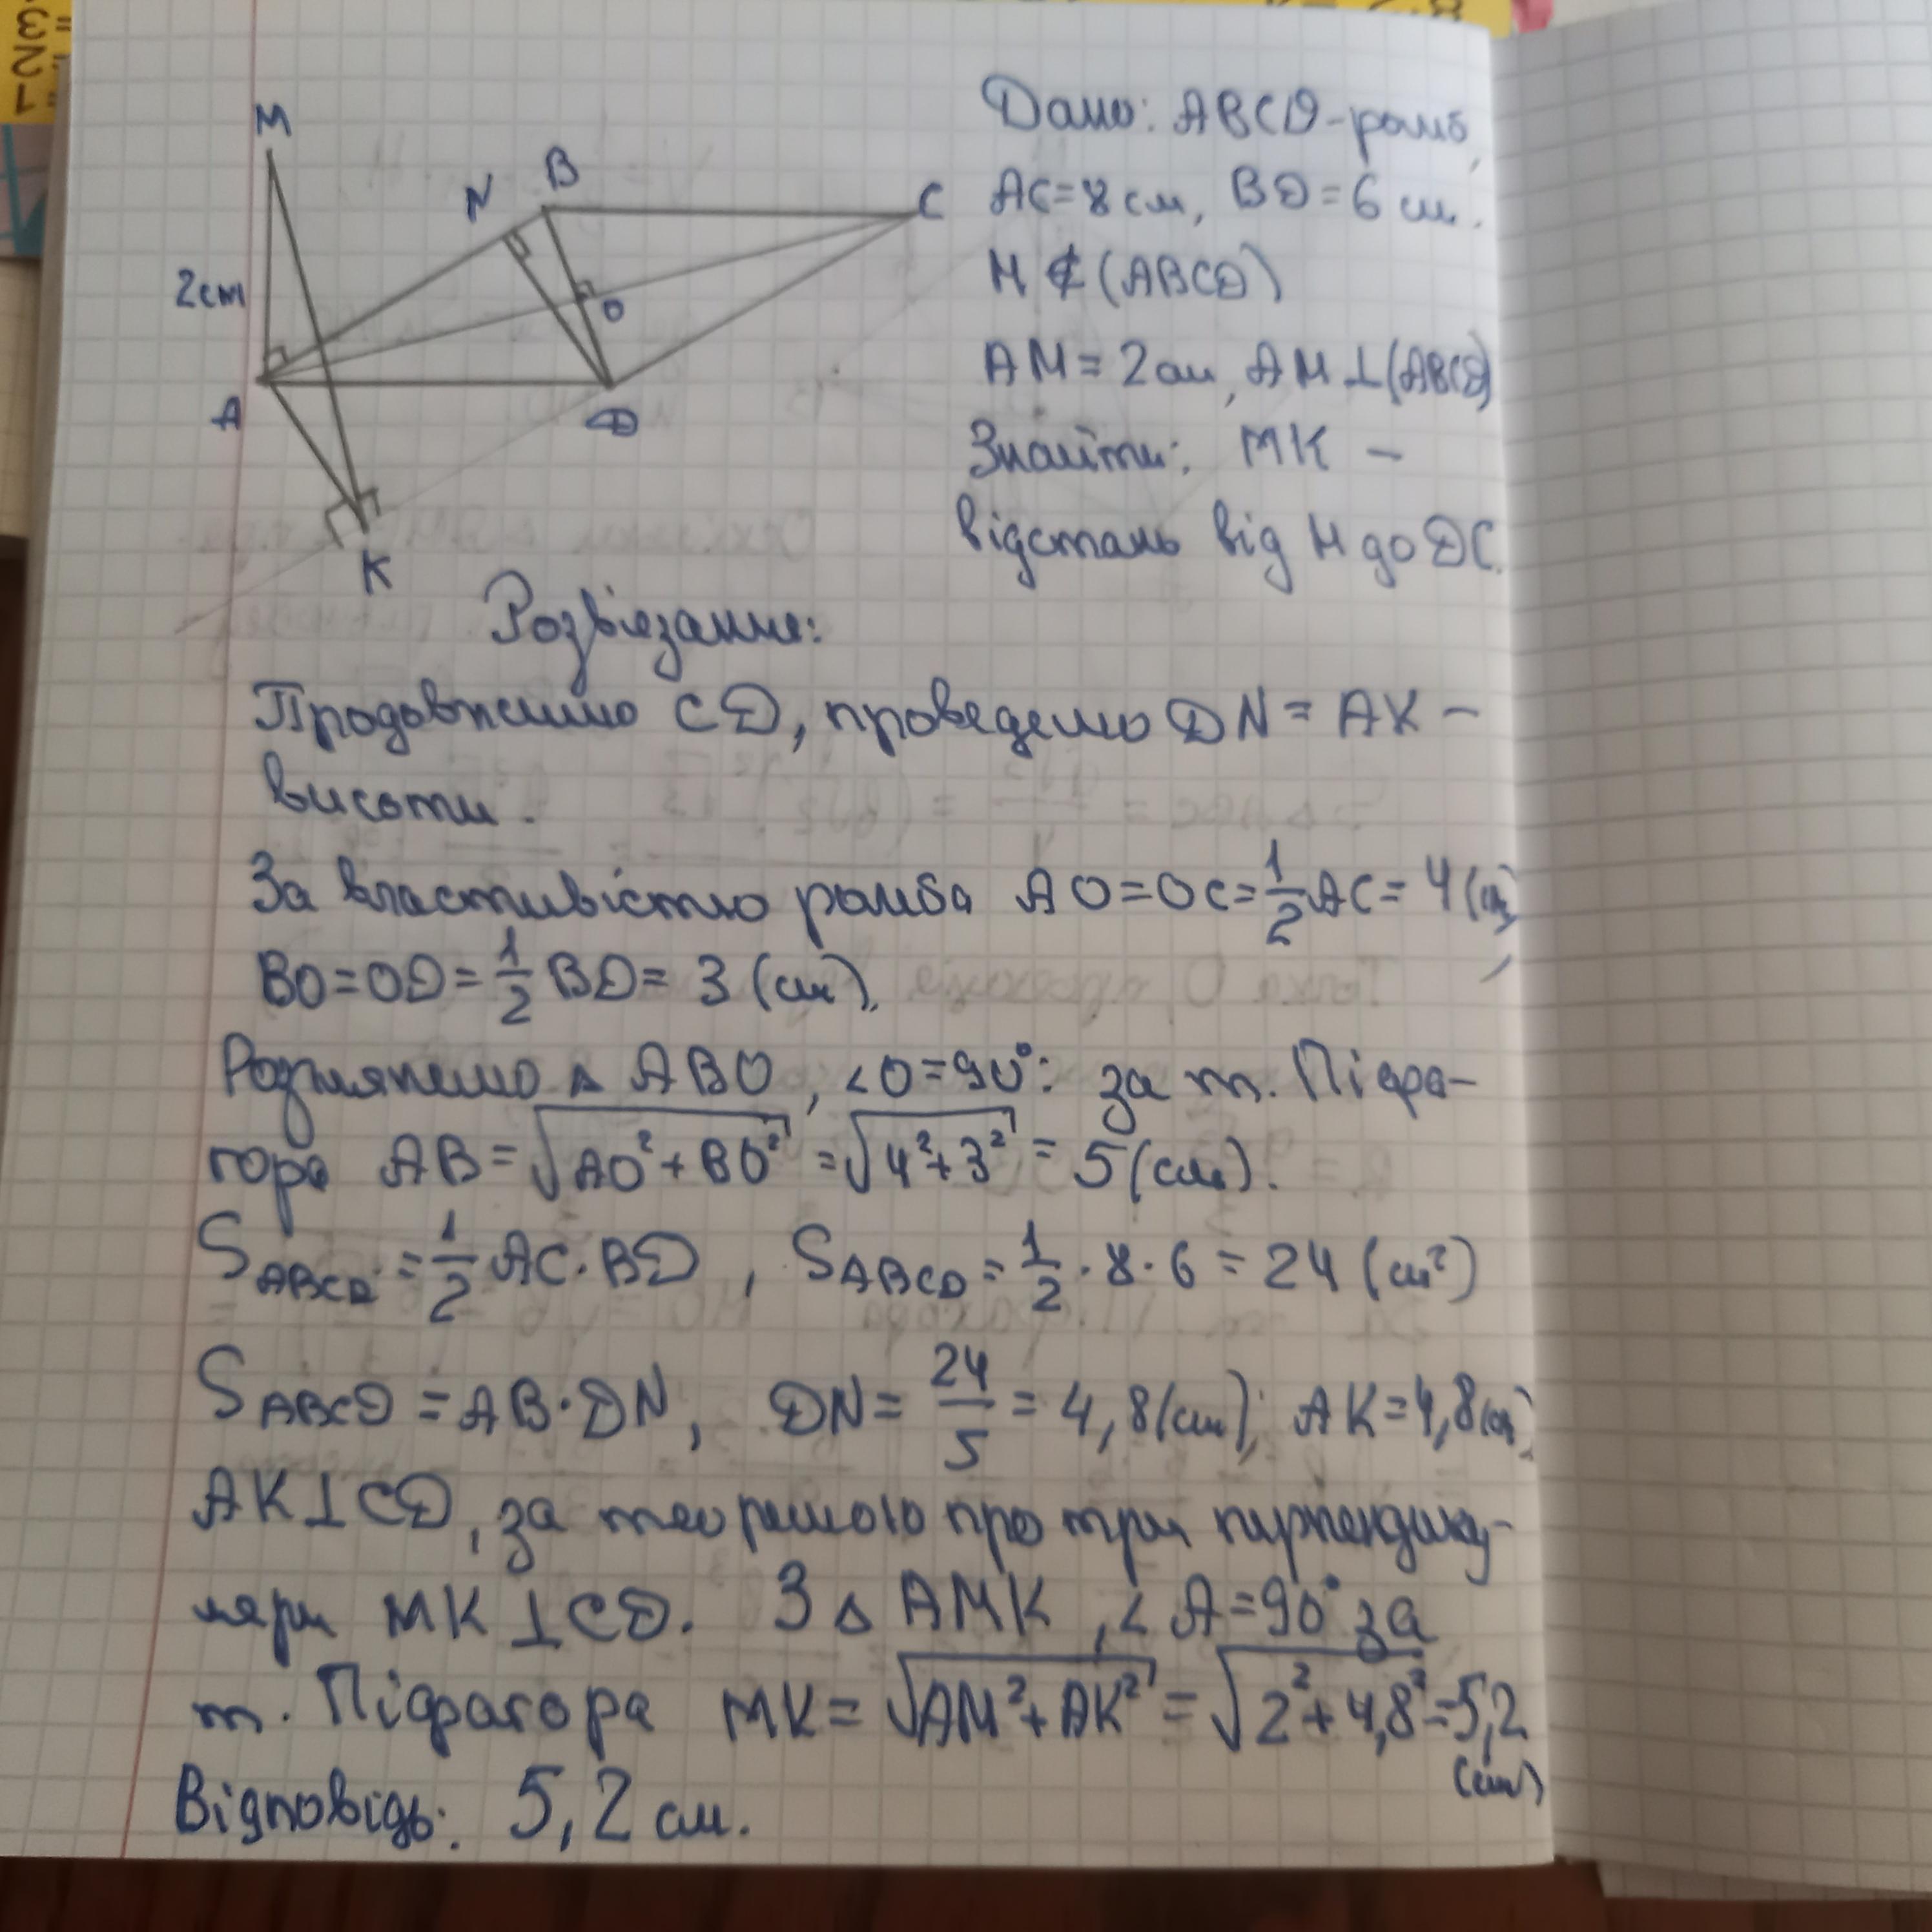 M
N
B
C
2см
O
A
D
K
Дано: ABCD-ромб,
AC=8см, BD=6см.
M ∉ (ABCD)
AM=2см, AM⊥(ABCD)
Знайти: MK –
відстань від M до DC.
Розв'язання:
Продовжимо CD, проведемо DN = AK –
висоти.
За властивістю ромба AO=OC=1/2AC=4(см),
BO=OD=1/2 BD=3 (см).
Розглянемо △ABO, ∠O=90°: за т. Піфа-
гора AB=√AO²+BO² =√4²+3² = 5(см).
S ABCD =1/2 AC·BD , S ABCD = 1/2·8·6 = 24 (см²)
S ABCD = AB·DN, DN= 24/5 = 4,8(см); AK=4,8(см).
AK⊥CD, за теоремою про три перпендику-
ляри MK⊥CD. З △AMK, ∠A=90° за
т. Піфагора MK= √AM²+AK² = √2²+4,8²=5,2
(см)
Відповідь: 5,2 см.